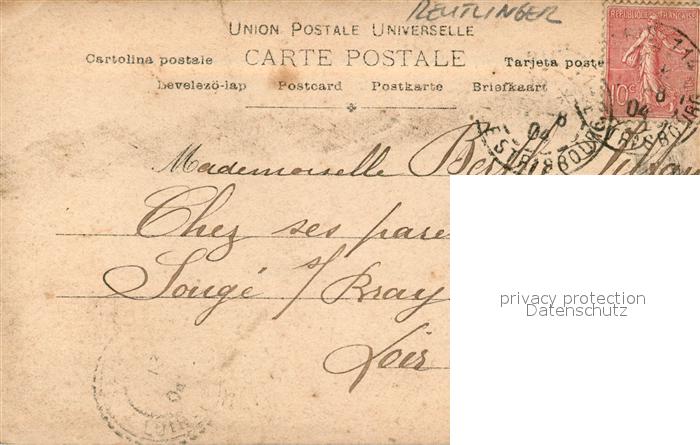 REUTLINGER
UNION POSTALE UNIVERSELLE
Cartolina postale CARTE POSTALE Tarjeta poste
Levelező-lap Postcard Postkarte Briefkaart
REPUBLIQUE FRANÇAISE
10c
04
STRASBOURG
04
Mademoiselle
Chez ses pare
Sougé s/ Bray
Loir
privacy protection
Datenschutz
04
LOIR